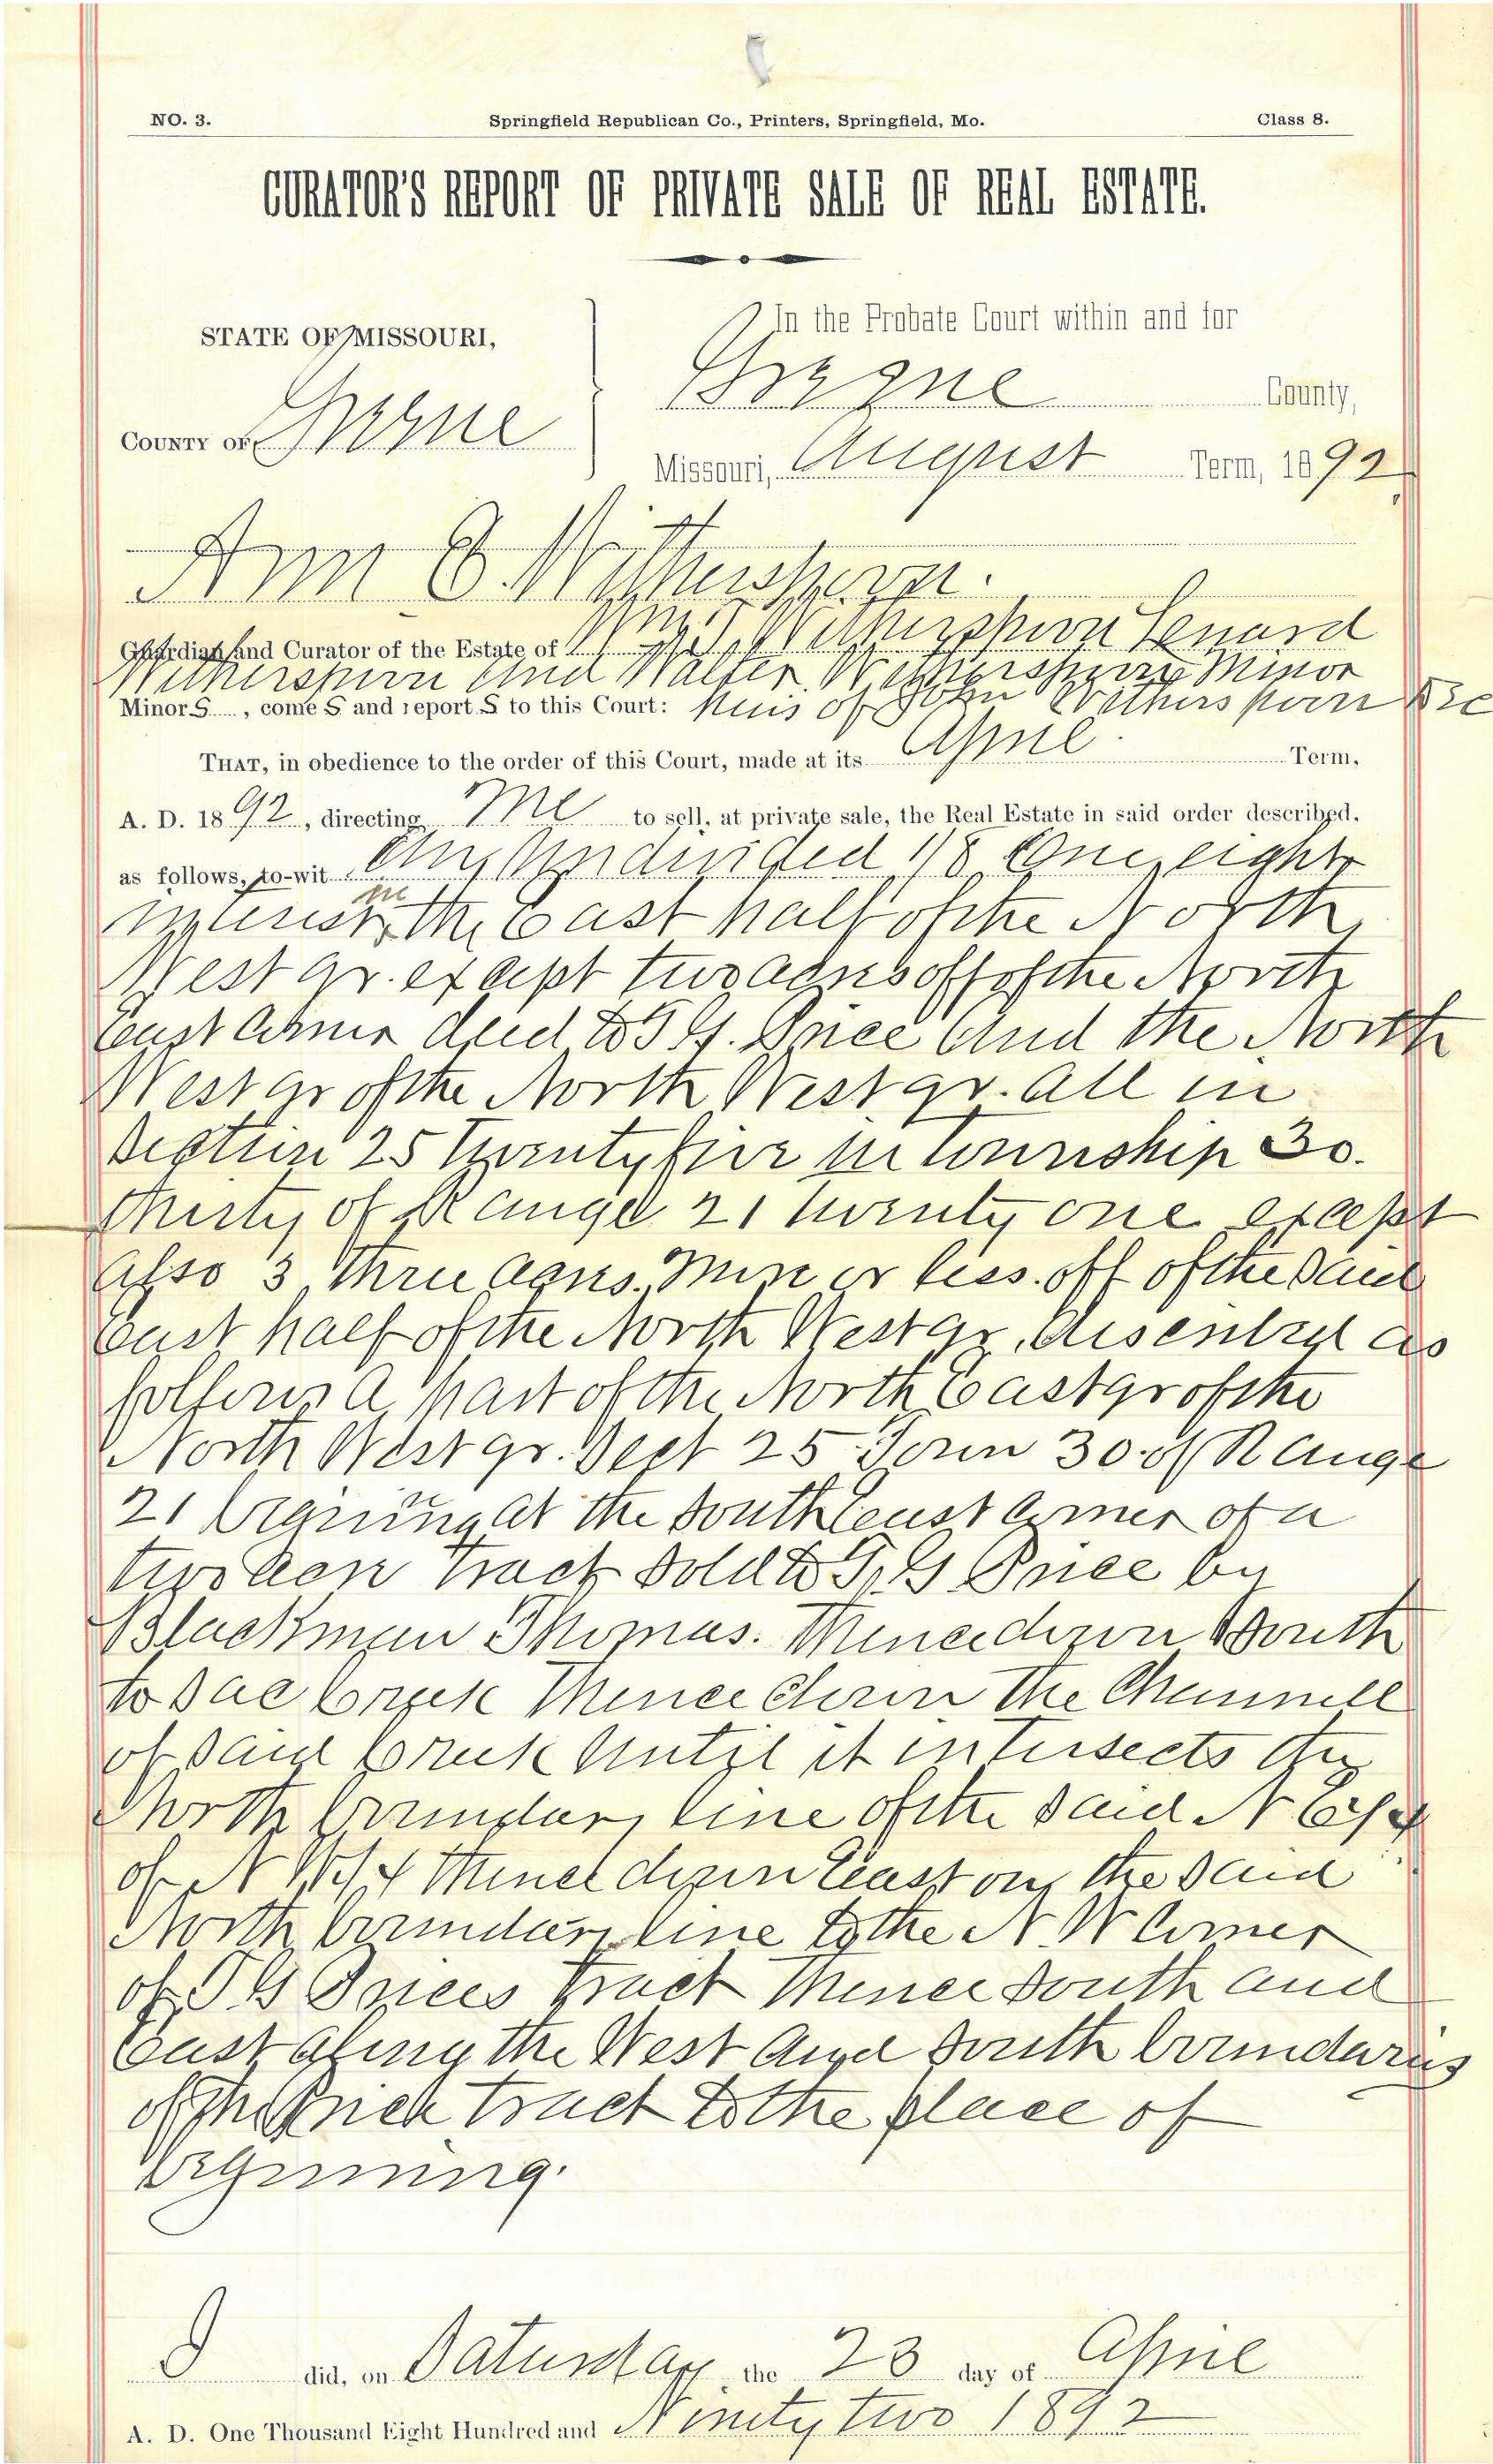 NO. 3. Springfield Republican Co., Printers, Springfield, Mo. Class 8.
CURATOR'S REPORT OF PRIVATE SALE OF REAL ESTATE.
In the Probate Court within and for
STATE OF MISSOURI,
Greene County,
COUNTY OF Greene
Missouri, August Term, 1892
Ann E. Witherspoon.
Guardian and Curator of the Estate of Witherspoon Lenard
Witherspoon and Walter Witherspoon Minor
Minor S, come S and report S to this Court: heirs of John Witherspoon Dec
THAT, in obedience to the order of this Court, made at its April Term,
A. D. 1892, directing me to sell, at private sale, the Real Estate in said order described,
as follows, to-wit An Undivided 1/8 One eight
interest in the East half of the North
West qr. except two acres off of the North
East corner deed to T. G. Price and the North
West qr of the North West qr. all in
Section 25 Twenty five in township 30.
thirty of Range 21 twenty one except
also 3 three acres more or less. off of the said
East half of the North West qr. discribed as
follows a part of the North East qr of the
North West qr. Sect 25 Town 30 of Range
21 begining at the South East corner of a
two acre tract sold to T. G Price by
Blackman Thomas. Thence down South
to Sac Creek thence down the Channell
of said Creek until it intersects the
North boundary line of the said N E 1/4
of N W 1/4 thence down East on the said
North boundary line to the N W corner
of T G Prices tract thence South and
East along the West and South boundaries
of the Price tract to the place of
begining.
I did, on Saturday the 23 day of April
A. D. One Thousand Eight Hundred and Ninety two 1892